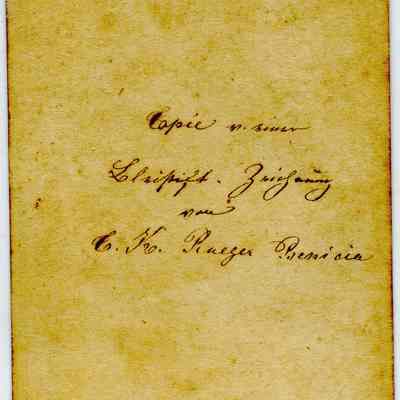 Copie v. einer
Bleistift-Zeichnung
von
C. K. Rueger Benicia